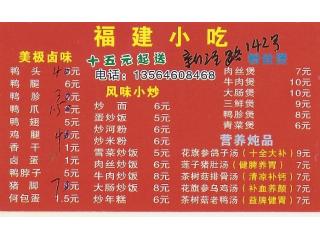 福建小吃
十五元起送
142号
电话：13564608468
美极卤味
鸭头 5元
鸭腿 6元
鸭胗
鸭爪
鸭翅 5元
鸡腿
香干 1元
卤蛋 1元
鸭脖子 5元
猪脚
何包蛋 1.5元
风味小炒
炒面 6元
蛋炒饭 5元
炒河粉 6元
炒米粉 6元
雪菜炒饭 5元
肉丝炒饭 6元
牛肉炒饭 8元
大肠炒饭 8元
炒年糕 6元
肉丝煲 7元
牛肉煲 10元
大肠煲 10元
三鲜煲 9元
鸭血煲 6元
青菜煲 6元
营养炖品
花旗参鸽子汤（十全大补）9元
莲子猪肚汤（健脾养胃）7元
茶树菇排骨汤（清凉补钙）7元
花旗参乌鸡汤（补血养颜）7元
茶树菇老鸭汤（益脾健胃）7元